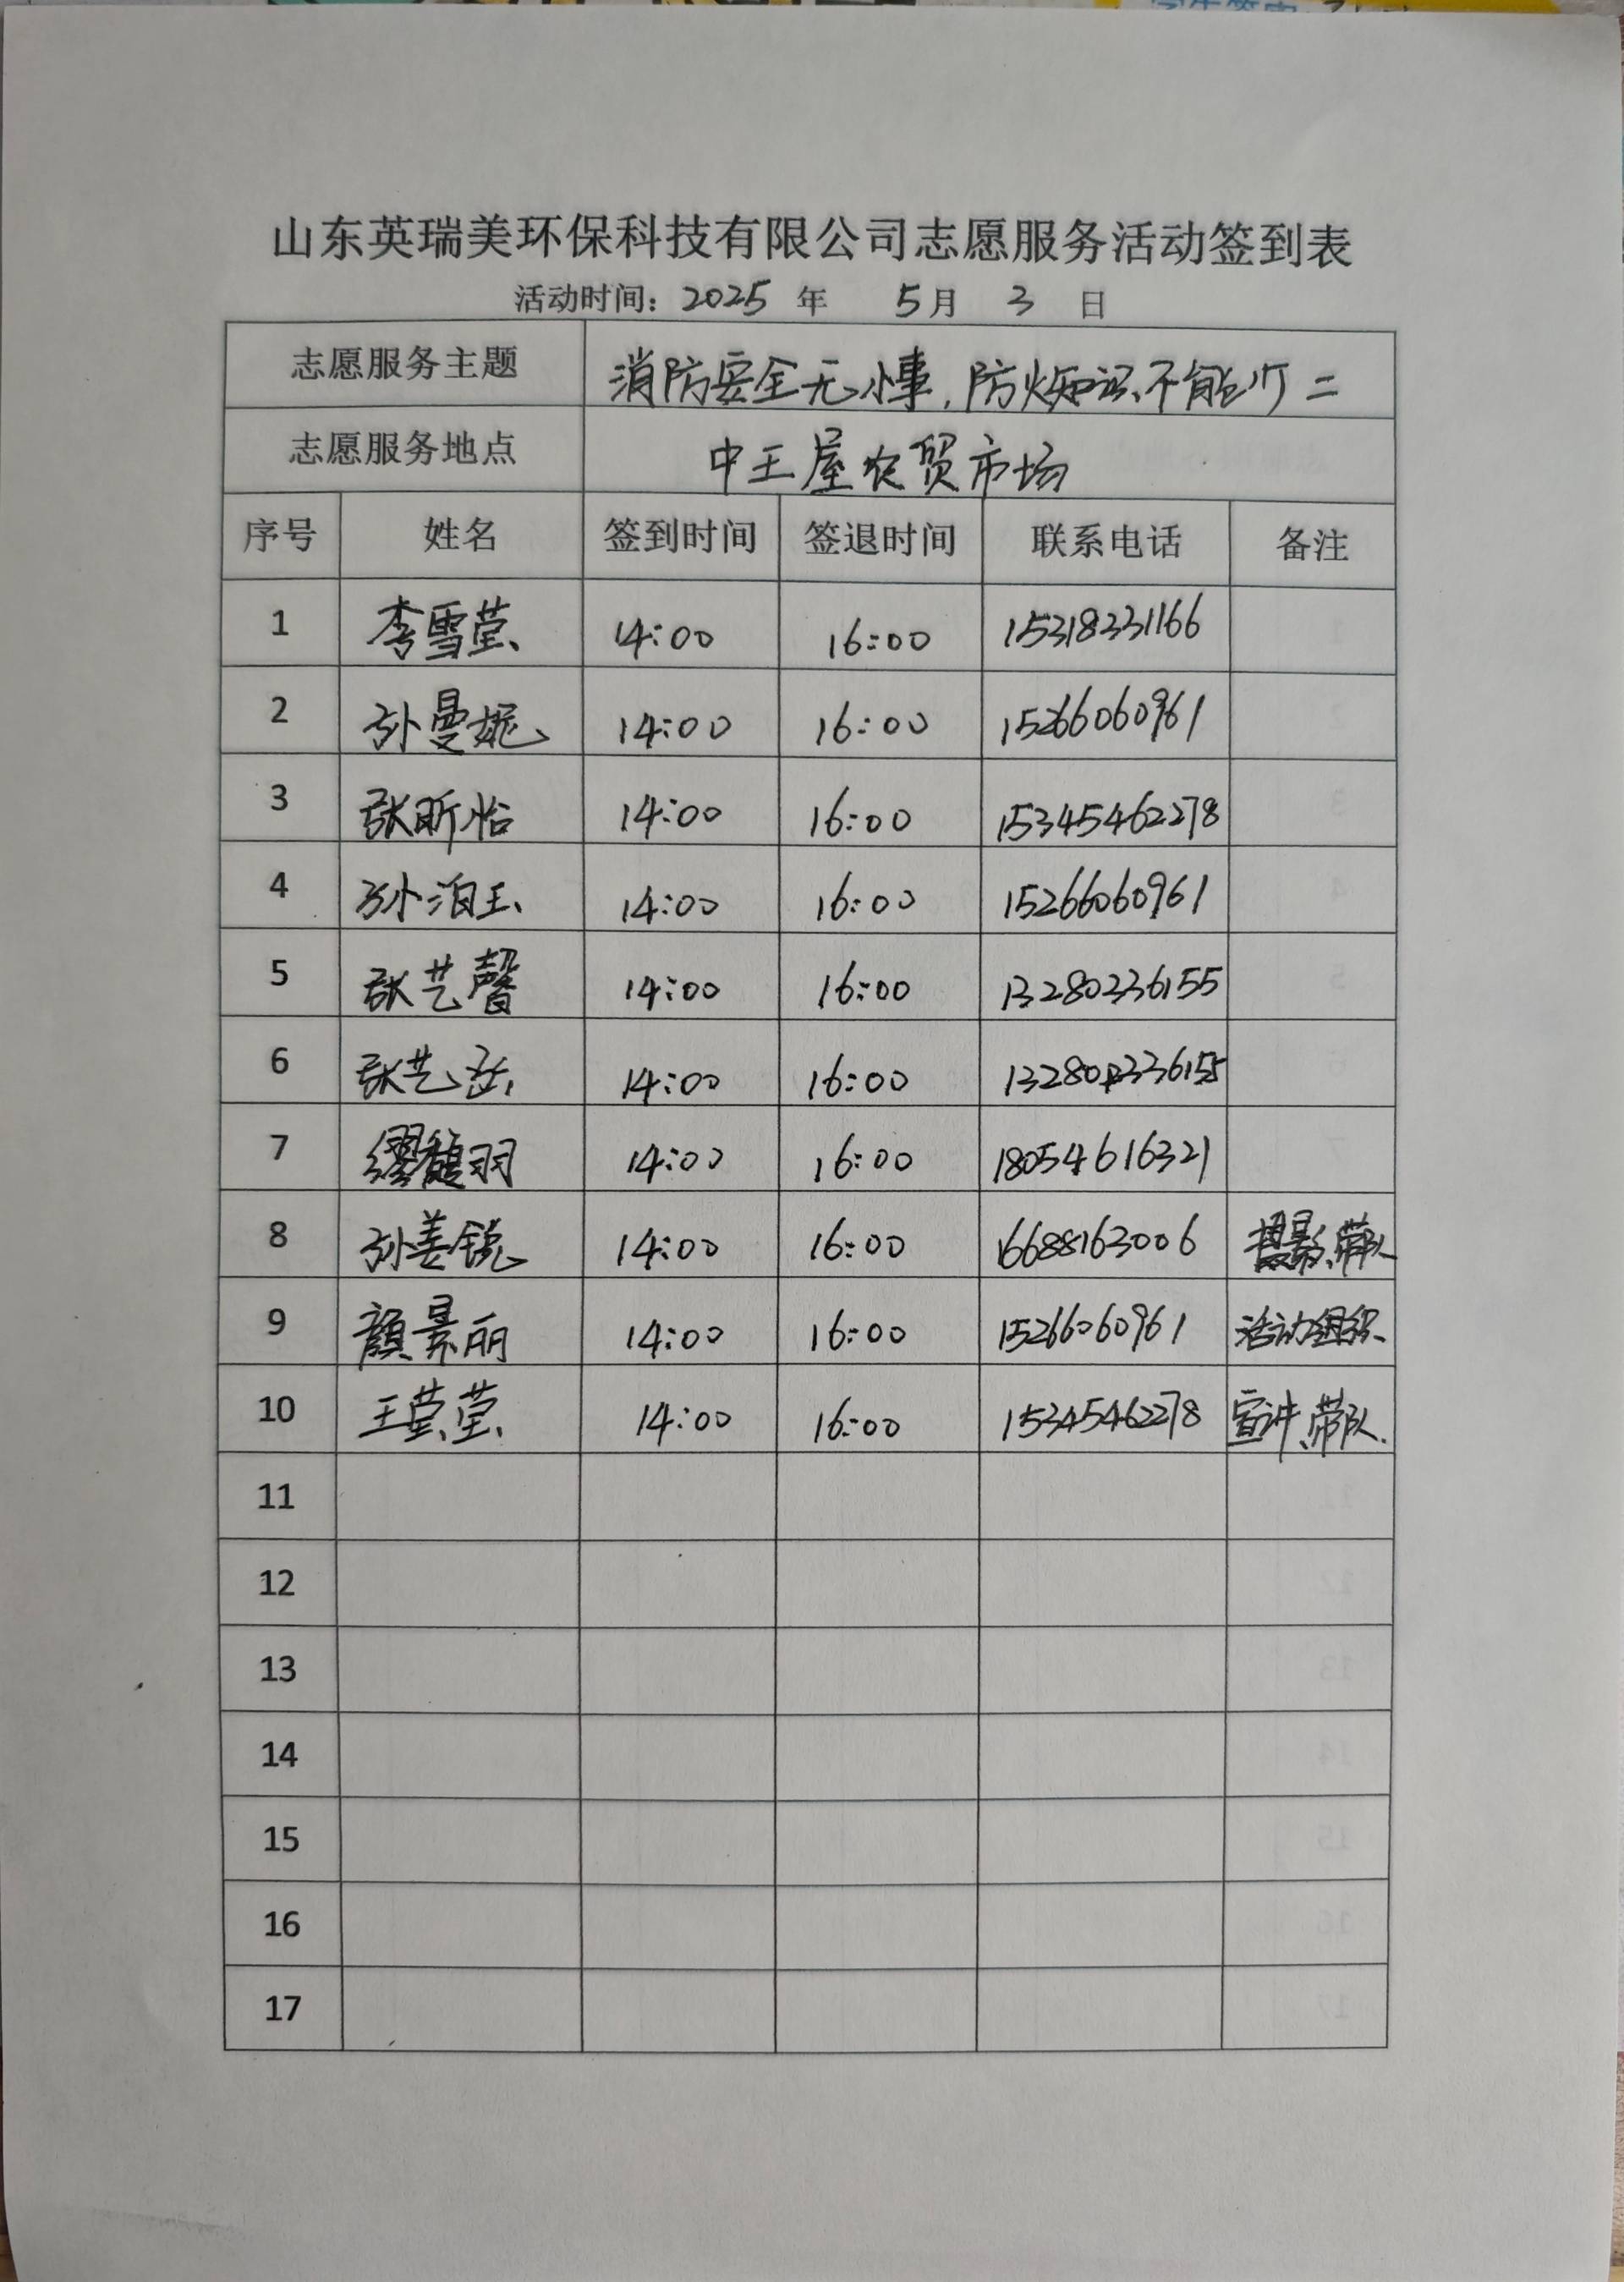 山东英瑞美环保科技有限公司志愿服务活动签到表
活动时间：2025 年 5月 3 日
志愿服务主题 消防安全无小事，防火知识不能少 二
志愿服务地点 中王屋农贸市场
序号 姓名 签到时间 签退时间 联系电话 备注
1 李雪莹 14:00 16:00 15318331166
2 孙曼妮 14:00 16:00 15266060961
3 张昕怡 14:00 16:00 15345462278
4 孙泊玉 14:00 16:00 15266060961
5 张艺馨 14:00 16:00 13280336155
6 张艺 14:00 16:00
7 缪馥羽 14:00 16:00 18054616321
8 孙姜锐 14:00 16:00 16688163006 摄影、带队
9 颜景丽 14:00 16:00 15266060961 活动组织
10 王莹莹 14:00 16:00 15345462278 宣讲、带队.
11
12
13
14
15
16
17